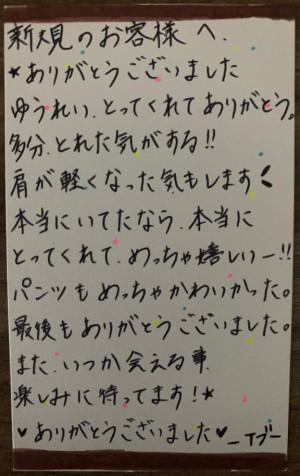 新規のお客様へ.
★ありがとうございました
ゆうれい.とってくれてありがとう。
多分.とれた気がする!!
肩が軽くなった気もします!
本当にいてたなら.本当に
とってくれて.めっちゃ嬉しいー!!
パンツもめっちゃかわいかった。
最後もありがとうございました。
また.いつか会える事.
楽しみに待ってます!★
♥ありがとうございました♥